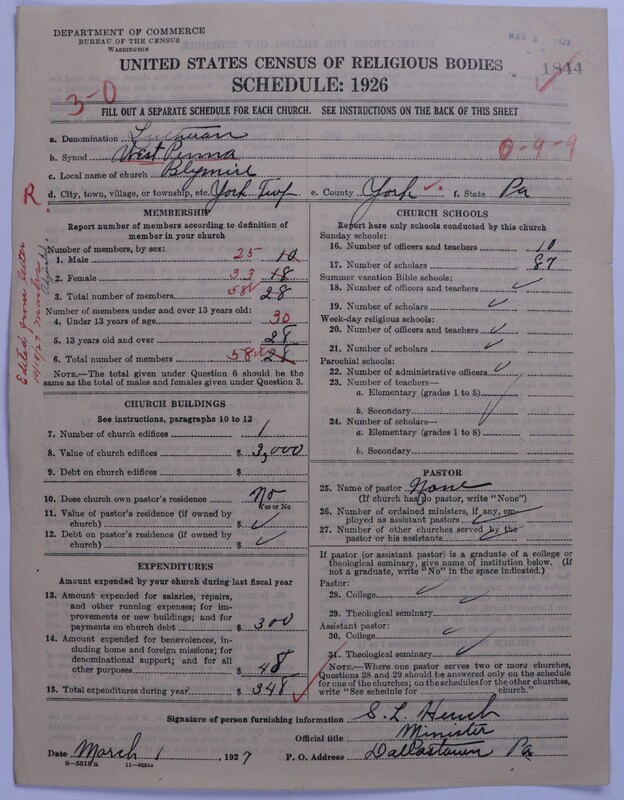 DEPARTMENT OF COMMERCE
BUREAU OF THE CENSUS
WASHINGTON
1844
UNITED STATES CENSUS OF RELIGIOUS BODIES
SCHEDULE: 1926
3-0
FILL OUT A SEPARATE SCHEDULE FOR EACH CHURCH. SEE INSTRUCTIONS ON THE BACK OF THIS SHEET
a. Denomination Lutheran
b. Synod West Penna
0-9-9
c. Local name of church Blymire
R
d. City, town, village, or township, etc. York Twp e. County York f. State Pa
MEMBERSHIP
Report number of members according to definition of
member in your church
Number of members, by sex:
1. Male 25 10
2. Female 33 18
3. Total number of members 58 28
Number of members under and over 13 years old:
4. Under 13 years of age 30
5. 13 years old and over 28
6. Total number of members 58 28
NOTE.—The total given under Question 6 should be
the same as the total of males and females given under Question 3.
Edited from letter
CHURCH BUILDINGS
See instructions, paragraphs 10 to 12
7. Number of church edifices 1
8. Value of church edifices $ 3,000
9. Debt on church edifices $
10. Does church own pastor's residence No
Yes or No
11. Value of pastor's residence (if owned by
church) $
12. Debt on pastor's residence (if owned by
church) $
EXPENDITURES
Amount expended by your church during last fiscal year
13. Amount expended for salaries, repairs,
and other running expenses; for im-
provements or new buildings; and for
payments on church debt $ 300
14. Amount expended for benevolences, in-
cluding home and foreign missions; for
denominational support; and for all
other purposes $ 48
15. Total expenditures during year $ 348
CHURCH SCHOOLS
Report here only schools conducted by this church
Sunday schools:
16. Number of officers and teachers 10
17. Number of scholars 87
Summer vacation Bible schools:
18. Number of officers and teachers
19. Number of scholars
Week-day religious schools:
20. Number of officers and teachers
21. Number of scholars
Parochial schools:
22. Number of administrative officers
23. Number of teachers—
a. Elementary (grades 1 to 8)
b. Secondary
24. Number of scholars—
a. Elementary (grades 1 to 8)
b. Secondary
PASTOR
25. Name of pastor None
(If church has no pastor, write "None")
26. Number of ordained ministers, if any, em-
ployed as assistant pastors
27. Number of other churches served by the
pastor or his assistants
If pastor (or assistant pastor) is a graduate of a college or
theological seminary, give name of institution below. (If
not a graduate, write "No" in the space indicated.)
Pastor:
28. College
29. Theological seminary
Assistant pastor:
30. College
31. Theological seminary
NOTE.—Where one pastor serves two or more churches,
Questions 28 and 29 should be answered only on the schedule
for one of the churches; on the schedules for the other churches,
write "See schedule for church."
Signature of person furnishing information S. L. Hench
Official title Minister
Date March 1, 1927 P. O. Address Dallastown Pa
8-5518a 11-9054